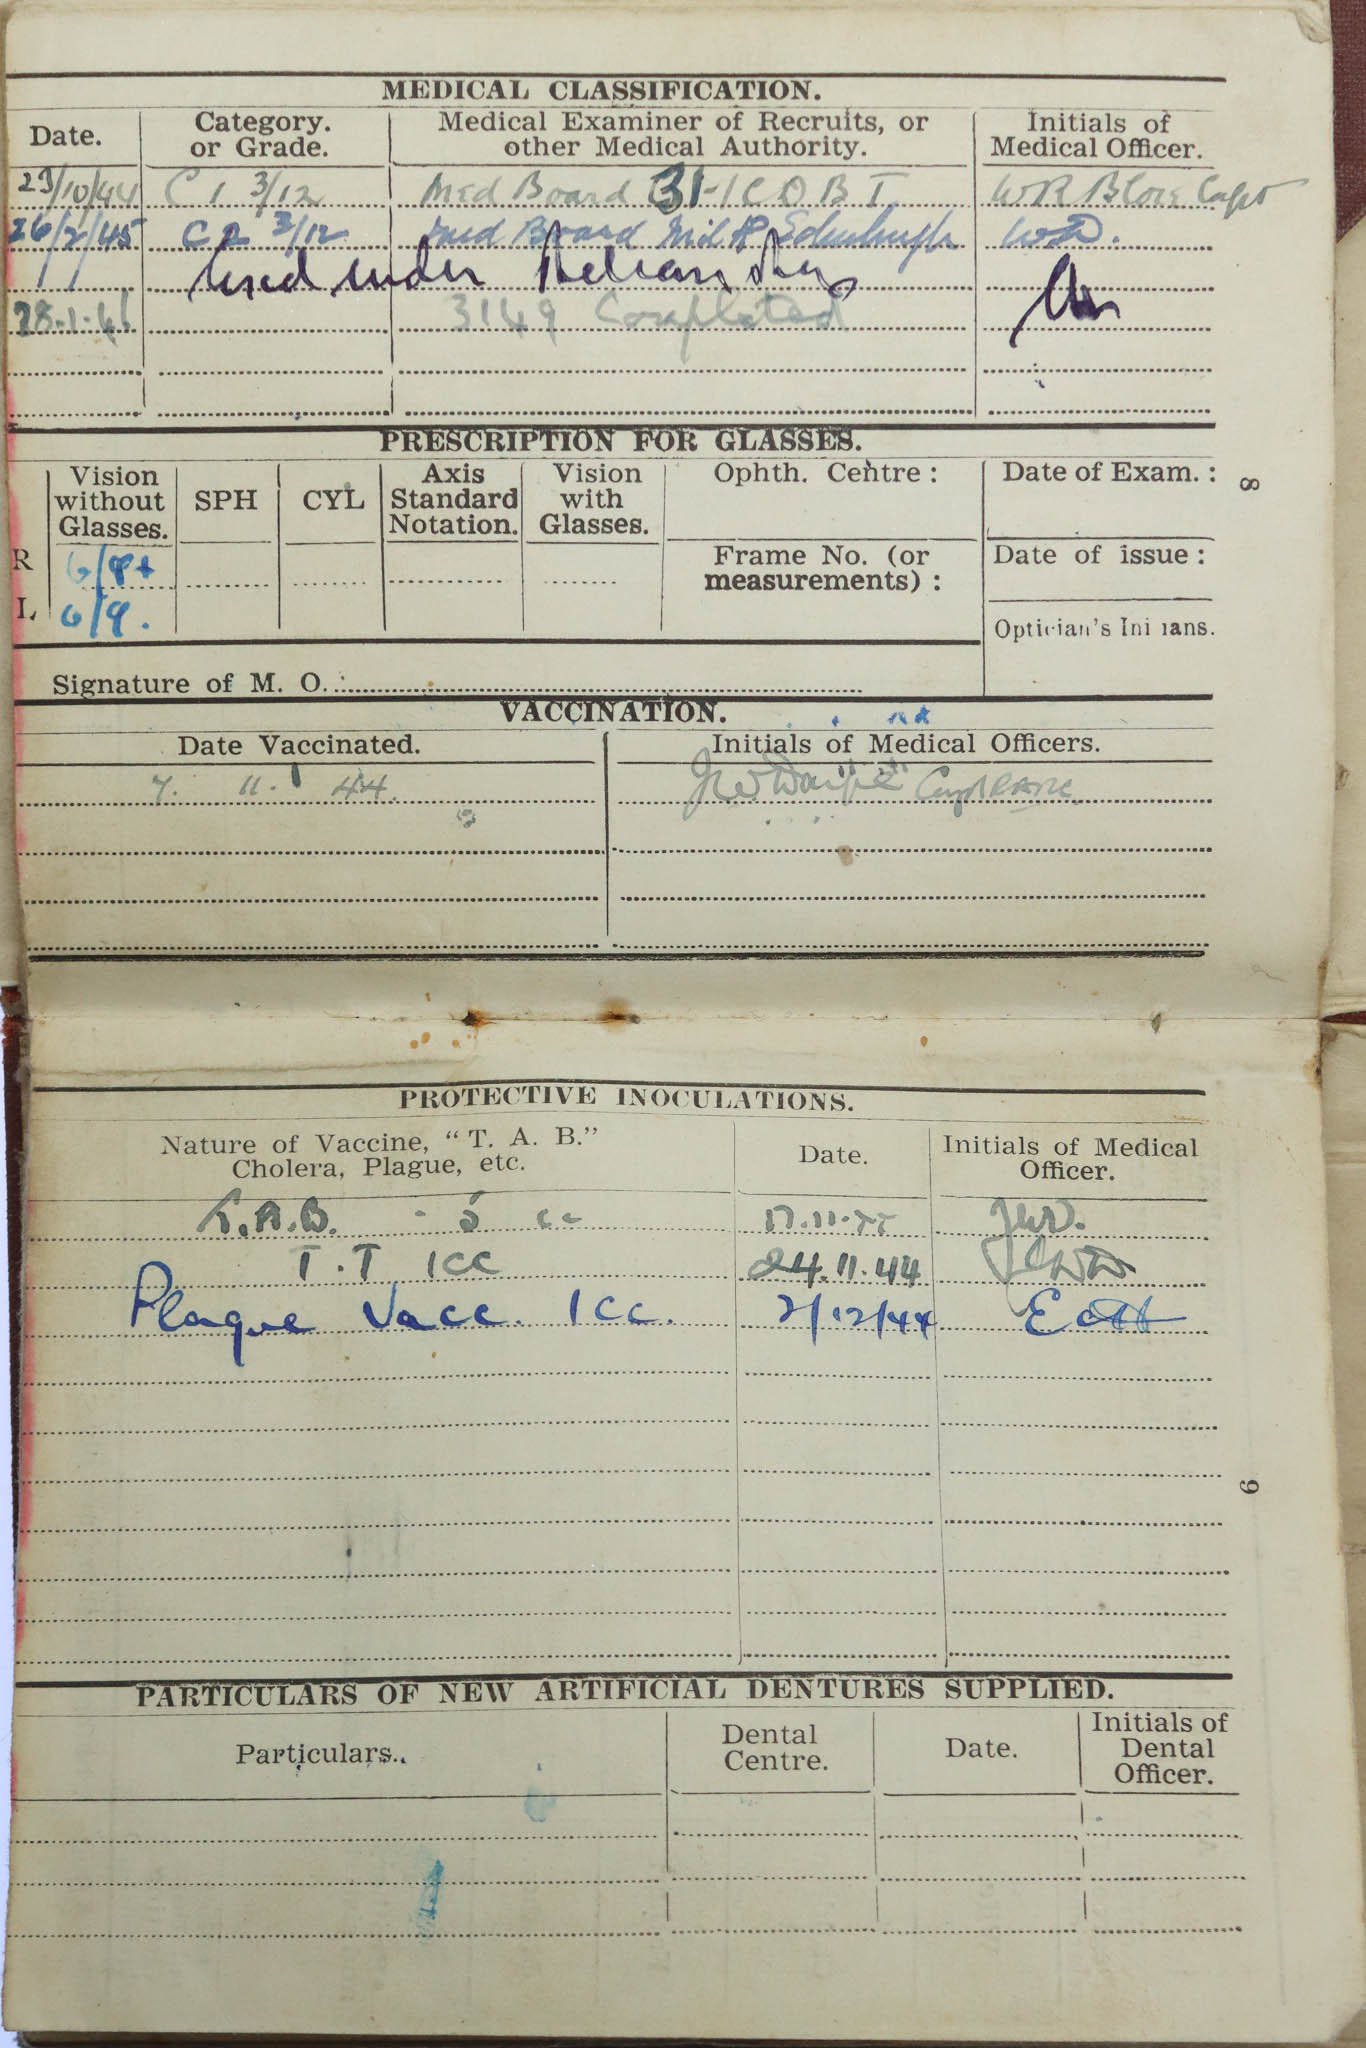 MEDICAL CLASSIFICATION.
Date. Category. or Grade. Medical Examiner of Recruits, or other Medical Authority. Initials of Medical Officer.
23/10/44 C 1 3/12 Med Board 31 Capt
26/2/45 C 2 3/12 Med Board Mil H Edinburgh
used under
28.1.46 3149 Completed
PRESCRIPTION FOR GLASSES.
Vision without Glasses. SPH CYL Axis Standard Notation. Vision with Glasses. Ophth. Centre: Date of Exam.:
8
Frame No. (or measurements): Date of issue:
R 6/9+
L 6/9.
Optician's
Signature of M. O.
VACCINATION.
Date Vaccinated. Initials of Medical Officers.
7. 11. 44.
PROTECTIVE INOCULATIONS.
Nature of Vaccine, "T. A. B." Cholera, Plague, etc. Date. Initials of Medical Officer.
T.A.B. .5 cc 17.11.44 JWD.
T.T 1CC 24.11.44 JWD
Plague Vacc. 1CC. 2/12/44
9
PARTICULARS OF NEW ARTIFICIAL DENTURES SUPPLIED.
Particulars. Dental Centre. Date. Initials of Dental Officer.